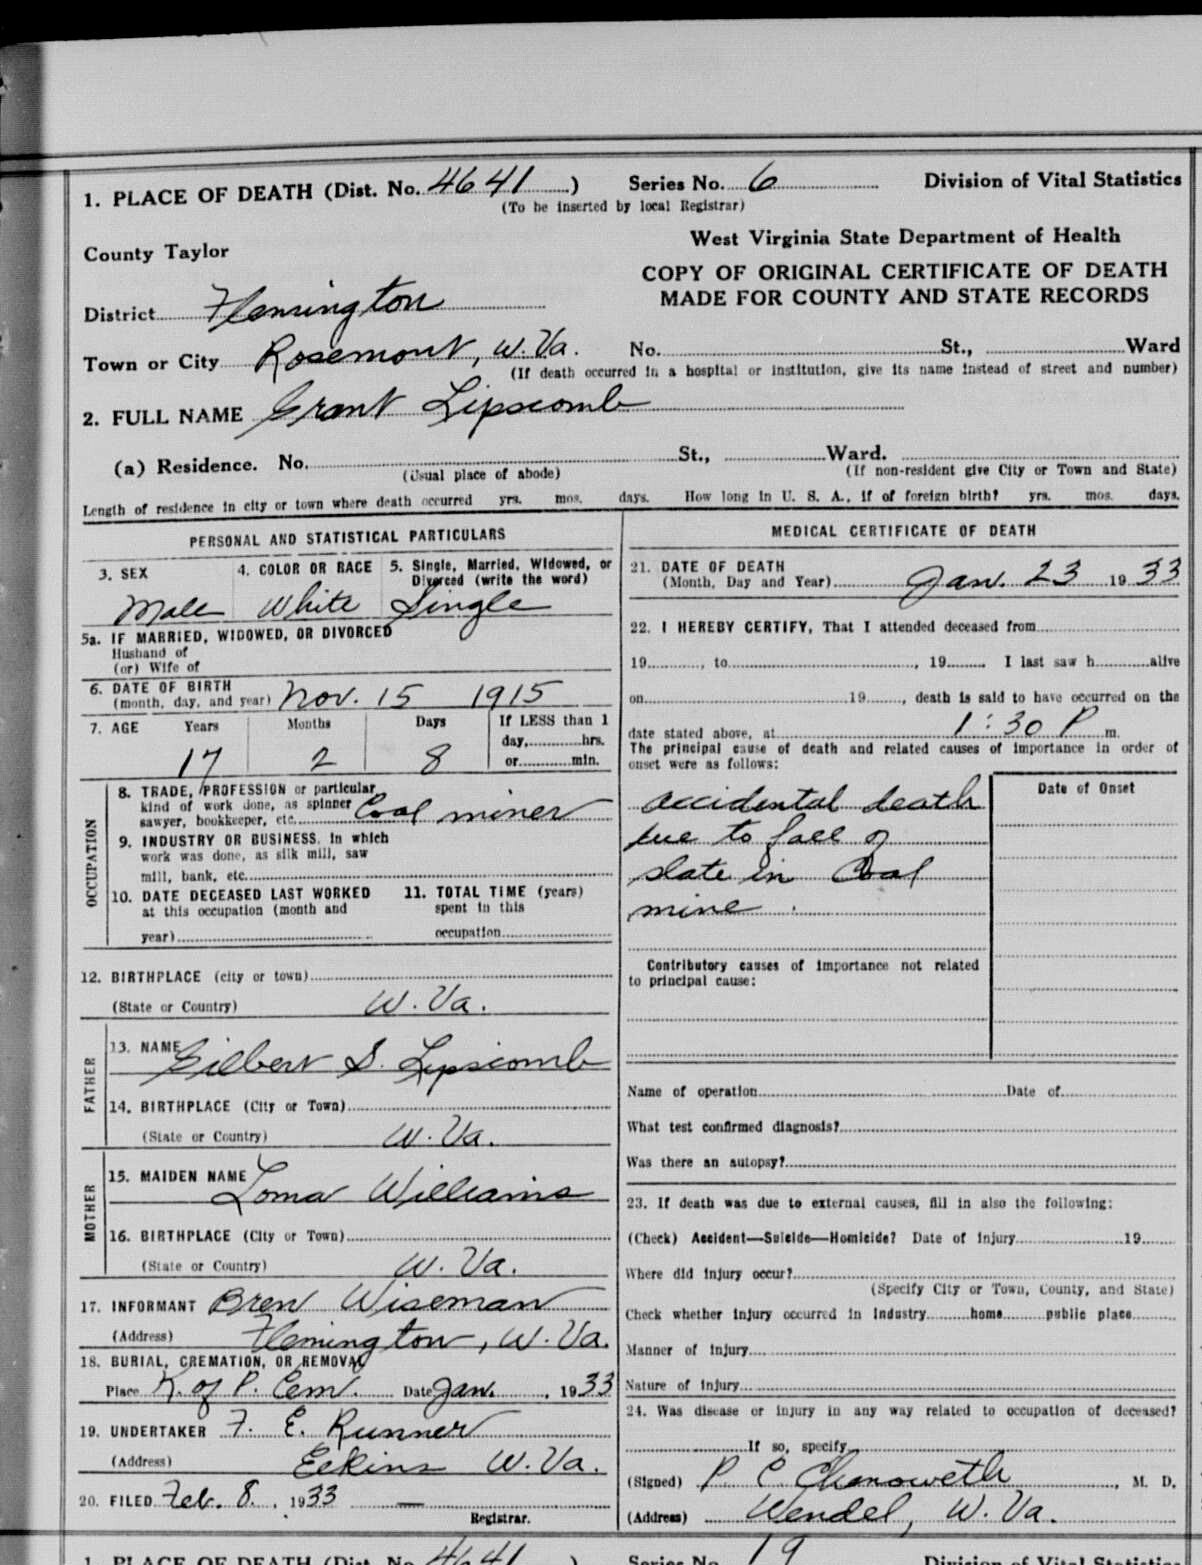 1. PLACE OF DEATH (Dist. No. 4641 ) Series No. 6 Division of Vital Statistics
(To be inserted by local Registrar)
County Taylor
West Virginia State Department of Health
COPY OF ORIGINAL CERTIFICATE OF DEATH
MADE FOR COUNTY AND STATE RECORDS
District Flemington
Town or City Rosemont, W. Va. No. St., Ward
(If death occurred in a hospital or institution, give its name instead of street and number)
2. FULL NAME Grant Lipscomb
(a) Residence. No. St., Ward.
(Usual place of abode) (If non-resident give City or Town and State)
Length of residence in city or town where death occurred yrs. mos. days. How long in U. S. A., if of foreign birth? yrs. mos. days.
PERSONAL AND STATISTICAL PARTICULARS
3. SEX 4. COLOR OR RACE 5. Single, Married, Widowed, or
Divorced (write the word)
Male White Single
5a. IF MARRIED, WIDOWED, OR DIVORCED
Husband of
(or) Wife of
6. DATE OF BIRTH
(month, day, and year) Nov. 15 1915
7. AGE Years Months Days If LESS than 1
day, hrs.
or min.
17 2 8
OCCUPATION
8. TRADE, PROFESSION or particular
kind of work done, as spinner
sawyer, bookkeeper, etc. Coal miner
9. INDUSTRY OR BUSINESS, in which
work was done, as silk mill, saw
mill, bank, etc.
10. DATE DECEASED LAST WORKED
at this occupation (month and
year)
11. TOTAL TIME (years)
spent in this
occupation
12. BIRTHPLACE (city or town)
(State or Country) W. Va.
FATHER
13. NAME Gilbert S. Lipscomb
14. BIRTHPLACE (City or Town)
(State or Country) W. Va.
MOTHER
15. MAIDEN NAME Loma Williams
16. BIRTHPLACE (City or Town)
(State or Country) W. Va.
17. INFORMANT Bren Wiseman
(Address) Flemington, W. Va.
18. BURIAL, CREMATION, OR REMOVAL
Place K. of P. Cem. Date Jan. , 1933
19. UNDERTAKER F. E. Runner
(Address) Elkins W. Va.
20. FILED Feb. 8. , 1933
Registrar.
MEDICAL CERTIFICATE OF DEATH
21. DATE OF DEATH
(Month, Day and Year) Jan. 23 1933
22. I HEREBY CERTIFY, That I attended deceased from
19 , to , 19 I last saw h alive
on 19 , death is said to have occurred on the
date stated above, at 1:30 P m.
The principal cause of death and related causes of importance in order of
onset were as follows:
Date of Onset
accidental death
due to fall of
slate in Coal
mine .
Contributory causes of importance not related
to principal cause:
Name of operation Date of
What test confirmed diagnosis?
Was there an autopsy?
23. If death was due to external causes, fill in also the following:
(Check) Accident—Suicide—Homicide? Date of injury 19
Where did injury occur?
(Specify City or Town, County, and State)
Check whether injury occurred in industry home public place
Manner of injury
Nature of injury
24. Was disease or injury in any way related to occupation of deceased?
If so, specify
(Signed) P. C. Chenoweth , M. D.
(Address) Wendel, W. Va.
1. PLACE OF DEATH (Dist. No. 4641 ) Series No. 19 Division of Vital Statistics